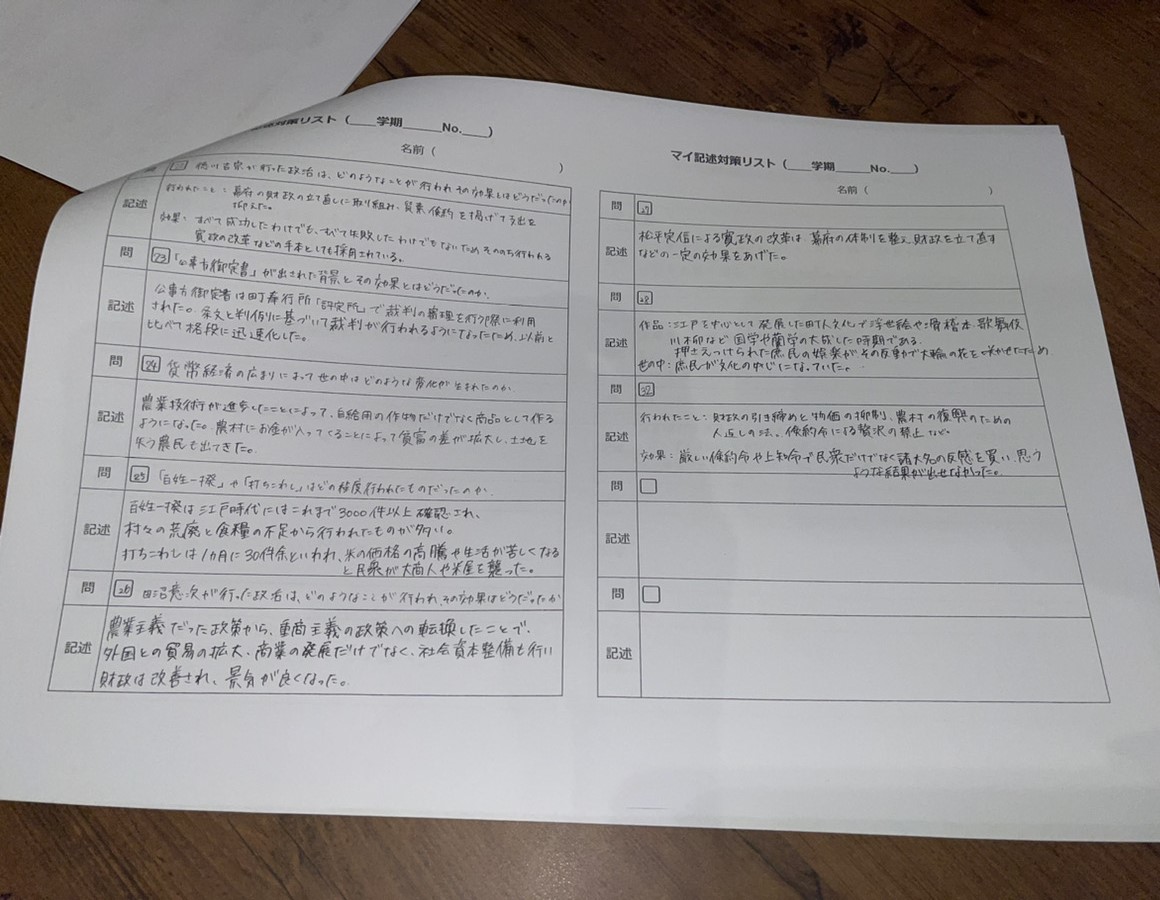 述対策リスト（___学期_____No.___）
名前（　　　　）
徳川吉宗が行った政治は、どのようなことが行われその効果とはどうだったのか
記述
行われたこと：幕府の財政の立て直しに取り組み、質素倹約を掲げて支出を
抑えた。
効果：すべて成功したわけでも、すべて失敗したわけでもないため そののち行われる
寛政の改革などの手本としても採用されている。
問 23 「公事方御定書」が出された背景とその効果とはどうだったのか。
記述
公事方御定書は町奉行所「評定所」で裁判の審理を行う際に利用
された。条文と判例に基づいて裁判が行われるようになったため、以前と
比べて格段に迅速化した。
問 24 貨幣経済の広まりによって世の中はどのような変化が生まれたのか
記述
農業技術が進歩したことによって、自給用の作物だけでなく商品として作る
ようになった。農村にお金が入ってくることによって貧富の差が拡大し、土地を
失う農民も出てきた。
問 25 「百姓一揆」や「打ちこわし」はどの程度行われたものだったのか
記述
百姓一揆は江戸時代にはこれまで3000件以上確認され、
村々の荒廃と食糧の不足から行われたものが多い。
打ちこわしは1カ月に30件余といわれ、米の価格の高騰や生活が苦しくなる
と民衆が大商人や米屋を襲った。
問 26 田沼意次が行った政治は、どのようなことが行われ、その効果はどうだったか
記述
農業主義だった政策から、重商主義の政策への転換したことで、
外国との貿易の拡大、商業の発展だけでなく、社会資本整備も行い
財政は改善され、景気が良くなった。
マイ記述対策リスト（___学期_____No.___）
名前（　　　　）
問 27
記述
松平定信による寛政の改革は 幕府の体制を整え 財政を立て直す
などの一定の効果をあげた。
問 28
記述
作品：江戸を中心として発展した町人文化で浮世絵や滑稽本、歌舞伎
川柳など 国学や蘭学の大成した時期である。
押さえつけられた庶民の娯楽がその反動で大輪の花を咲かせたため
世の中：庶民が文化の中心になっていた。
問
記述
行われたこと：財政の引き締めと物価の抑制、農村の復興のための
人返しの法。倹約令による贅沢の禁止など。
効果：厳しい倹約令や上知令で民衆だけでなく諸大名の反感を買い、思う
ような結果が出せなかった。
問
記述
問
記述